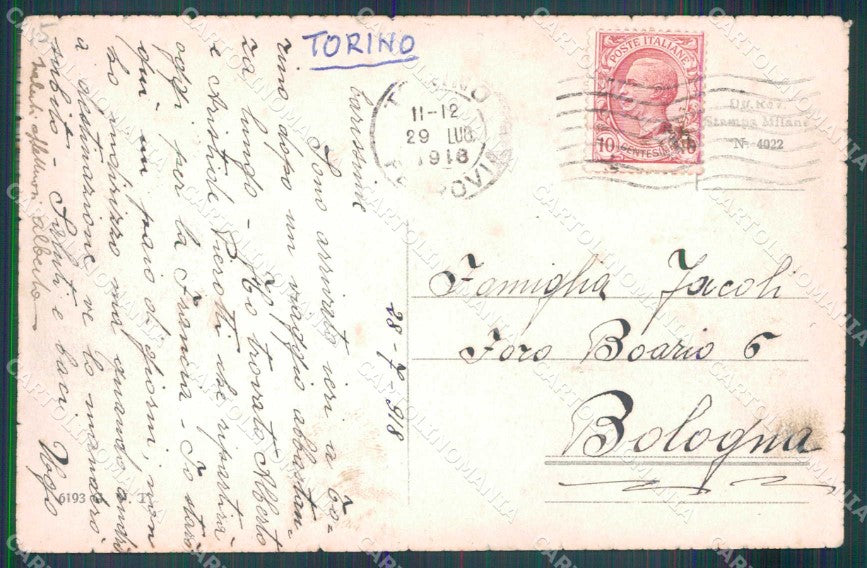 TORINO
TORINO
11-12
29 LUG
1918
FERROVIA
POSTE ITALIANE
10 CENTESIMI 10
Stampa Milano
N. 4022
28-7-918
Carissime
Sono arrivato ieri a To-
rino dopo un viaggio abbastan-
za lungo - Ho trovato Alberto
e Aristide Pierotti che ripartirà
oggi per la Francia - Io starò
qui un paio di giorni, non
ho indirizzo ma quando andrò
a destinazione ve lo manderò
subito - Saluti e baci Ugo
Saluti affettuosi Alberto
6193
Famiglia Jacoli
Foro Boario 6
Bologna
CARTOLINOMANIA